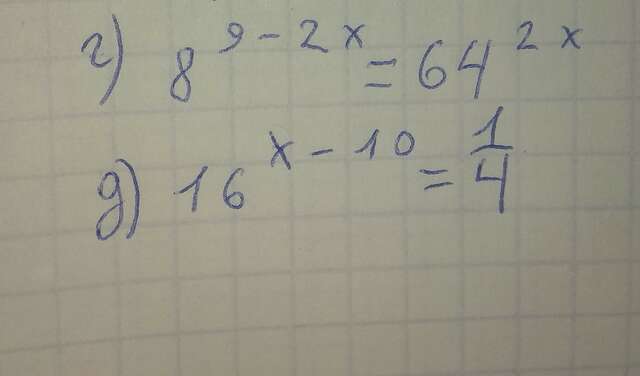 г) 8^{9-2x} = 64^{2x}
д) 16^{x-10} = \frac{1}{4}